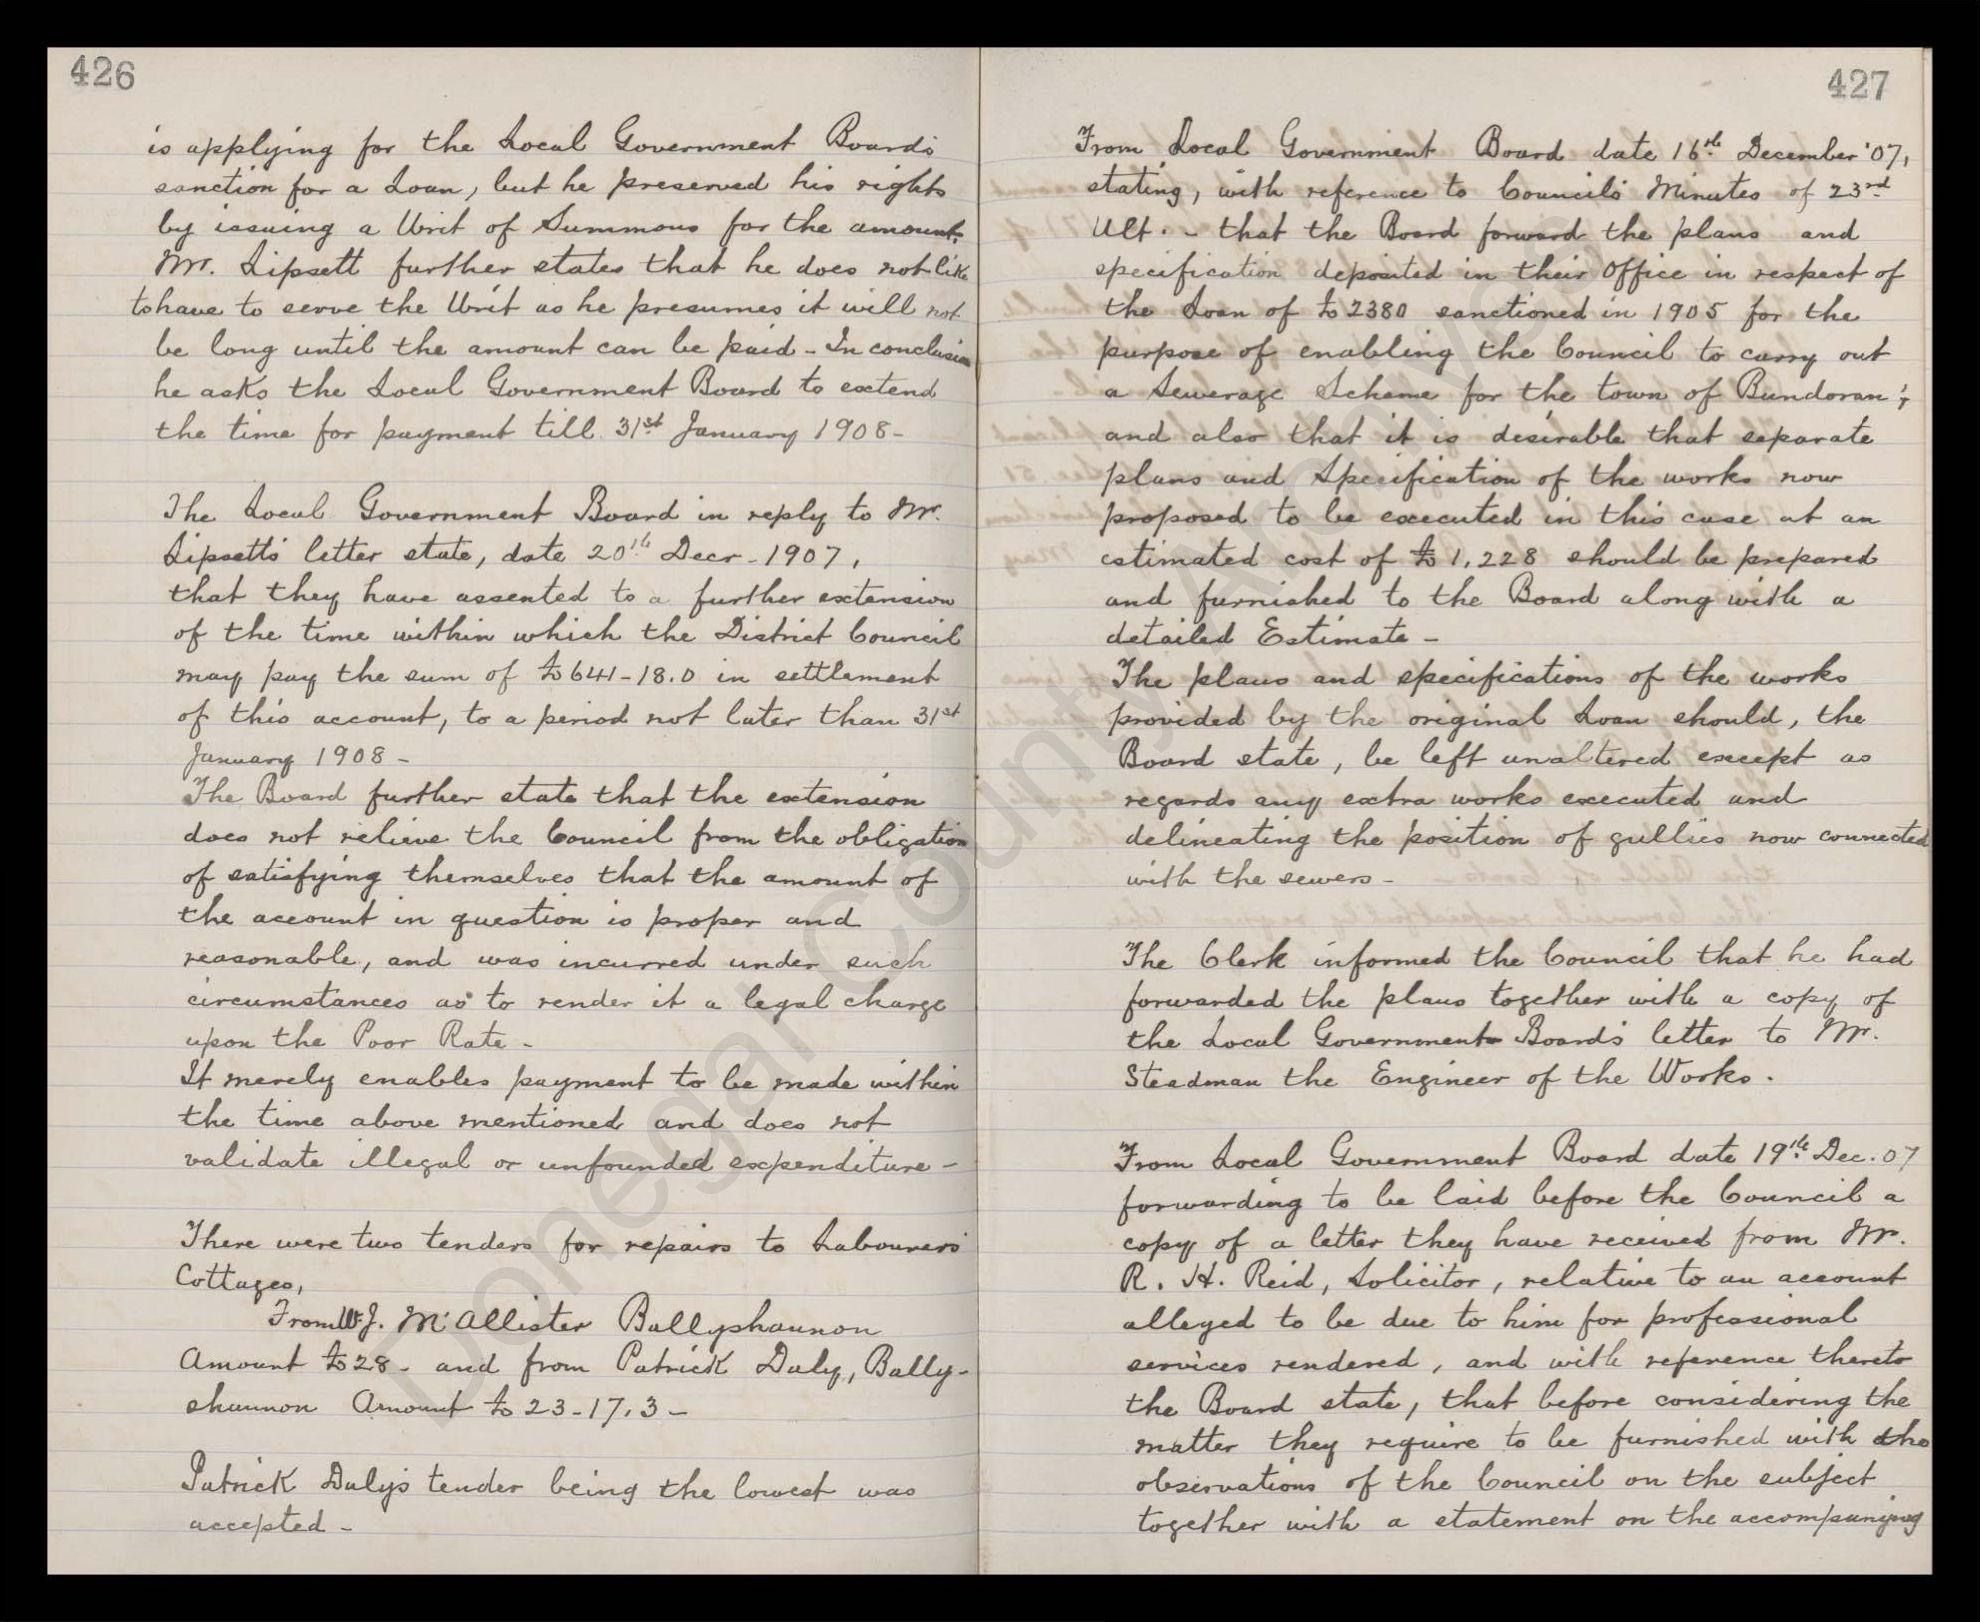 426
is applying for the Local Government Board's
sanction for a Loan, but he preserved his rights
by issuing a Writ of Summons for the amount.
Mr. Lipsett further states that he does not like
to have to serve the Writ as he presumes it will not
be long until the amount can be paid - In conclusion
he asks the Local Government Board to extend
the time for payment till 31st January 1908 -
The Local Government Board in reply to Mr.
Lipsett's letter state, date 20th Decr. 1907,
that they have assented to a further extension
of the time within which the District Council
may pay the sum of £641-18.0 in settlement
of this account, to a period not later than 31st
January 1908 -
The Board further state that the extension
does not relieve the Council from the obligation
of satisfying themselves that the amount of
the account in question is proper and
reasonable, and was incurred under such
circumstances as to render it a legal charge
upon the Poor Rate -
It merely enables payment to be made within
the time above mentioned and does not
validate illegal or unfounded expenditure -
There were two tenders for repairs to Labourers'
Cottages,
From W.J. McAllister Ballyshannon
Amount £28 - and from Patrick Daly, Bally-
shannon Amount £23-17.3 -
Patrick Daly's tender being the lowest was
accepted -
427
From Local Government Board date 16th December '07,
stating, with reference to Council's Minutes of 23rd
Ult. - that the Board forward the plans and
specification deposited in their Office in respect of
the Loan of £2380 sanctioned in 1905 for the
purpose of enabling the Council to carry out
a Sewerage Scheme for the town of Bundoran;
and also that it is desirable that separate
plans and Specification of the works now
proposed to be executed in this case at an
estimated cost of £1,228 should be prepared
and furnished to the Board along with a
detailed Estimate -
The plans and specifications of the works
provided by the original Loan should, the
Board state, be left unaltered except as
regards any extra works executed and
delineating the position of gullies now connected
with the sewers -
The Clerk informed the Council that he had
forwarded the plans together with a copy of
the Local Government Board's letter to Mr.
Steadman the Engineer of the Works.
From Local Government Board date 19th Dec. 07
forwarding to be laid before the Council a
copy of a letter they have received from Mr.
R. H. Reid, Solicitor, relative to an account
alleged to be due to him for professional
services rendered, and with reference thereto
the Board state, that before considering the
matter they require to be furnished with the
observations of the Council on the subject
together with a statement on the accompanying
Donegal County Archives